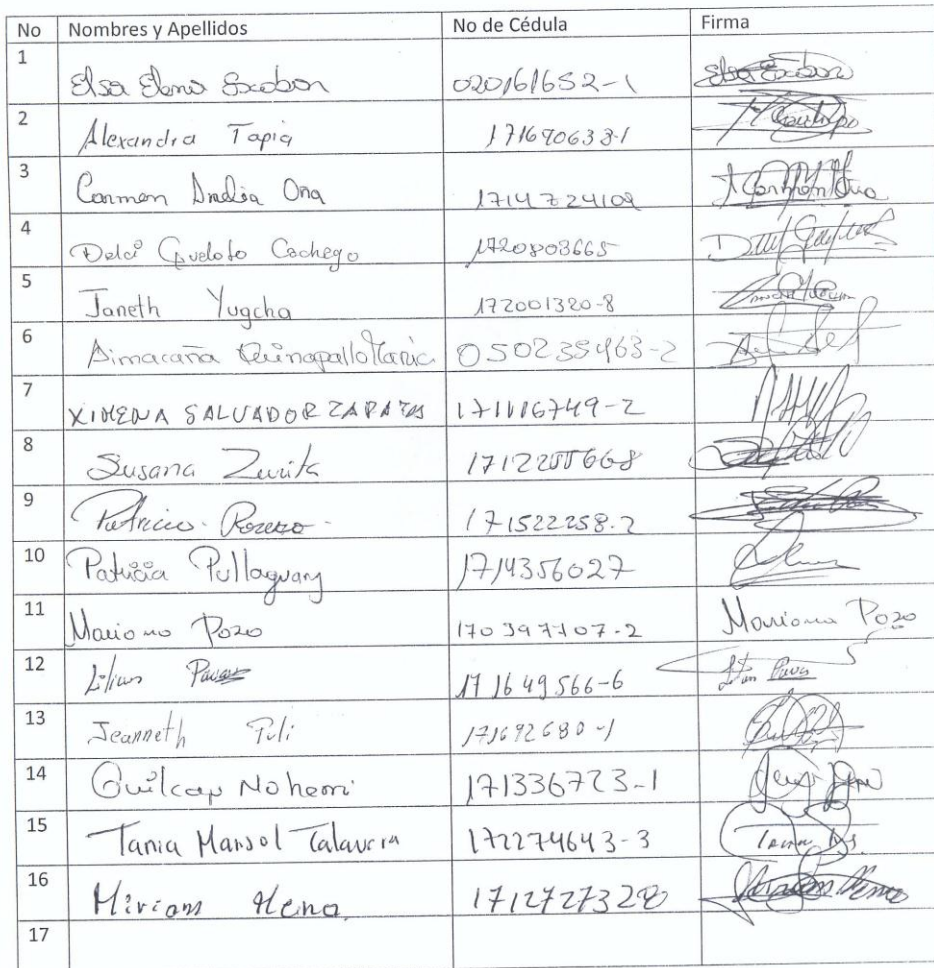 No Nombres y Apellidos No de Cédula Firma
1 Elsa Elena Escobar 020161652-1 Elsa Escobar
2 Alexandra Tapia 171690638-1
3 Carmen Amelia Oña 1714724109 Carmen Oña
4 Delci 1720803665
5 Janeth Yugcha 172001320-8
6 Aimacaña Quinapallo Maria 050235963-2
7 XIMENA SALVADOR ZAPATA 171116749-2
8 Susana Zurita 1712255668
9 Patricio 171522258-2
10 Patricia Pullaguary 1714356027
11 Mariana Pozo 170397707-2 Mariana Pozo
12 Lilian 171649566-6 Lilian
13 Jeanneth Puli 171692680-1
14 Quilcap Nohemi 171336723-1
15 Tania Marisol Talavera 172274643-3 Tania
16 Miriam Mena 1712727320
17